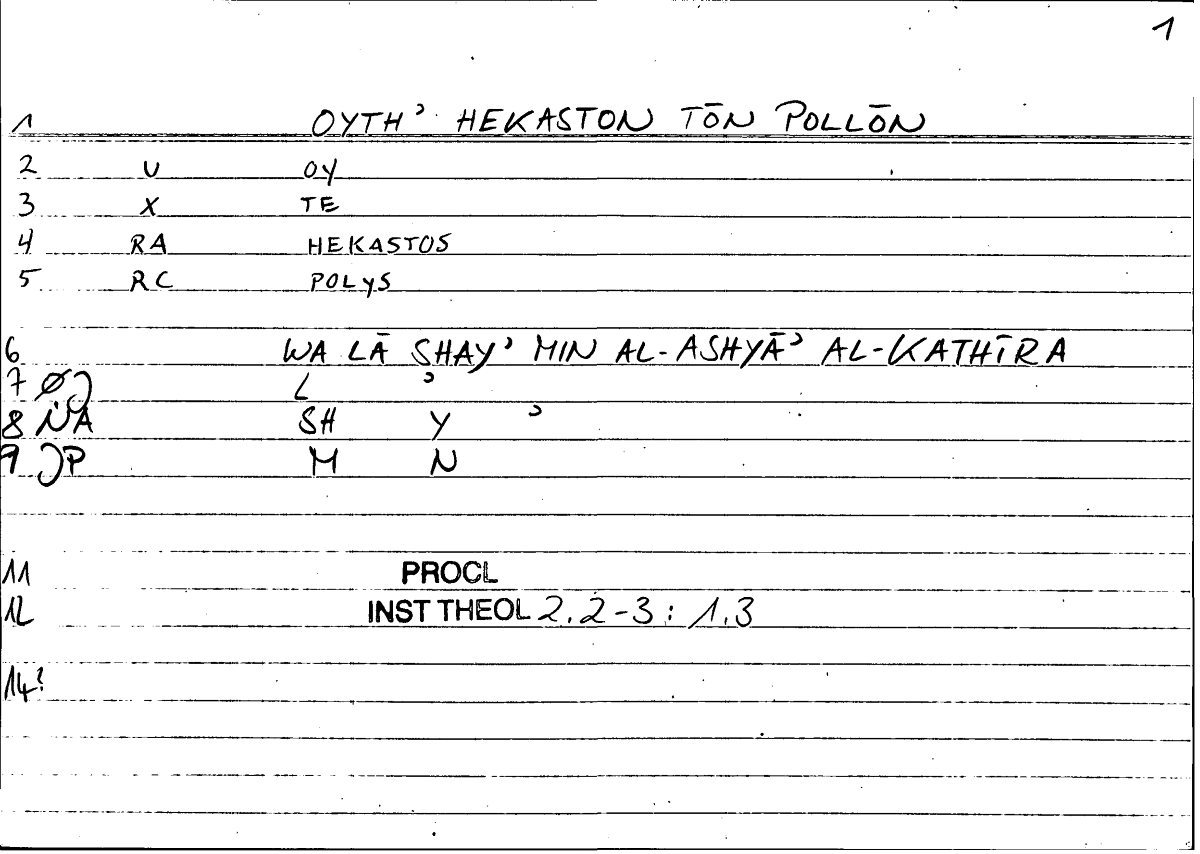 1
1 OYTH' HEKASTON TŌN POLLŌN
2 U OY
3 X TE
4 RA HEKASTOS
5 RC POLYS
6 WA LĀ SHAY' MIN AL-ASHYĀ' AL-KATHĪRA
7 L '
8 NA SH Y '
9 P M N
11 PROCL
12 INST THEOL 2.2-3 : 1.3
14?